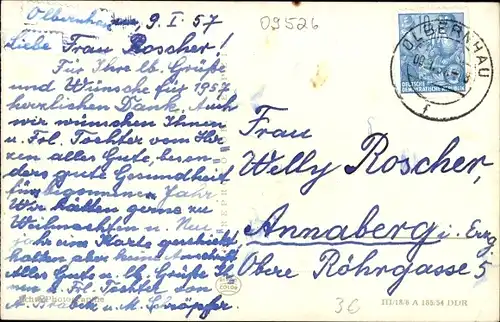 Olbernhau, 9. I. 57
Liebe Frau Roscher!
Für Ihre lb. Grüße
und Wünsche für 1957
herzlichen Dank. Auch
wir wünschen Ihnen
u. Frl. Tochter vom Her
zen alles Gute, beson
ders gute Gesundheit
für begonnene Jahr.
Wir hätten gerne zu
Weihnachten u. Neu
jahr eine Karte geschickt,
hatten aber keine Anschrift.
Alles Gute u. lb. Grüße Ihnen
u. Frl. Tochter von
A. u. M. Schöpfer
09526
OLBERNHAU
DEUTSCHE
DEMOKRATISCHE REPUBLIK
Frau
Welly Roscher,
Annaberg i. Erzg.
Obere Röhrgasse 5
36
Echte Photographie
III/18/6 A 185/54 DDR